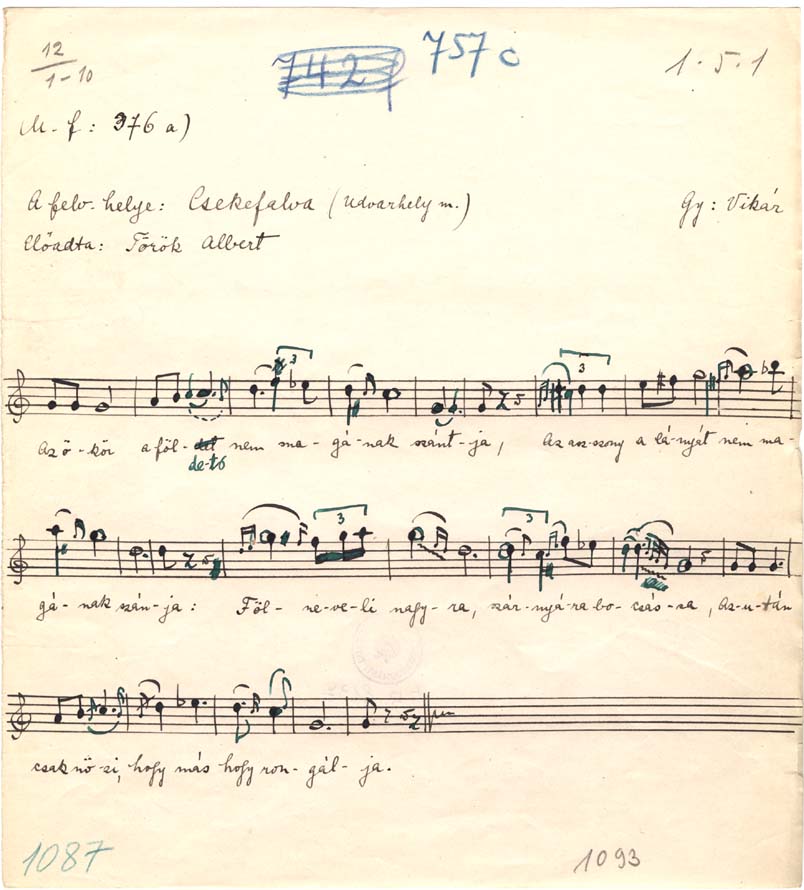 12
1-10
742
757 c
1.5.1
M-f: 376 a)
A felv. helye: Csekefalva (Udvarhely m.)
Gy: Vikár
Előadta: Török Albert
3
3
Az ö-kör a föl-det nem ma-gá-nak szánt-ja, Az asz-szony a lá-nyát nem ma-
de-tő
3
3
gá-nak szán-ja: Föl-ne-ve-li nagy-ra, szár-nyá-ra bo-csás-sa, Az-u-tán
csak nő-zi, hogy más hogy ron-gál-ja.
1087
1093